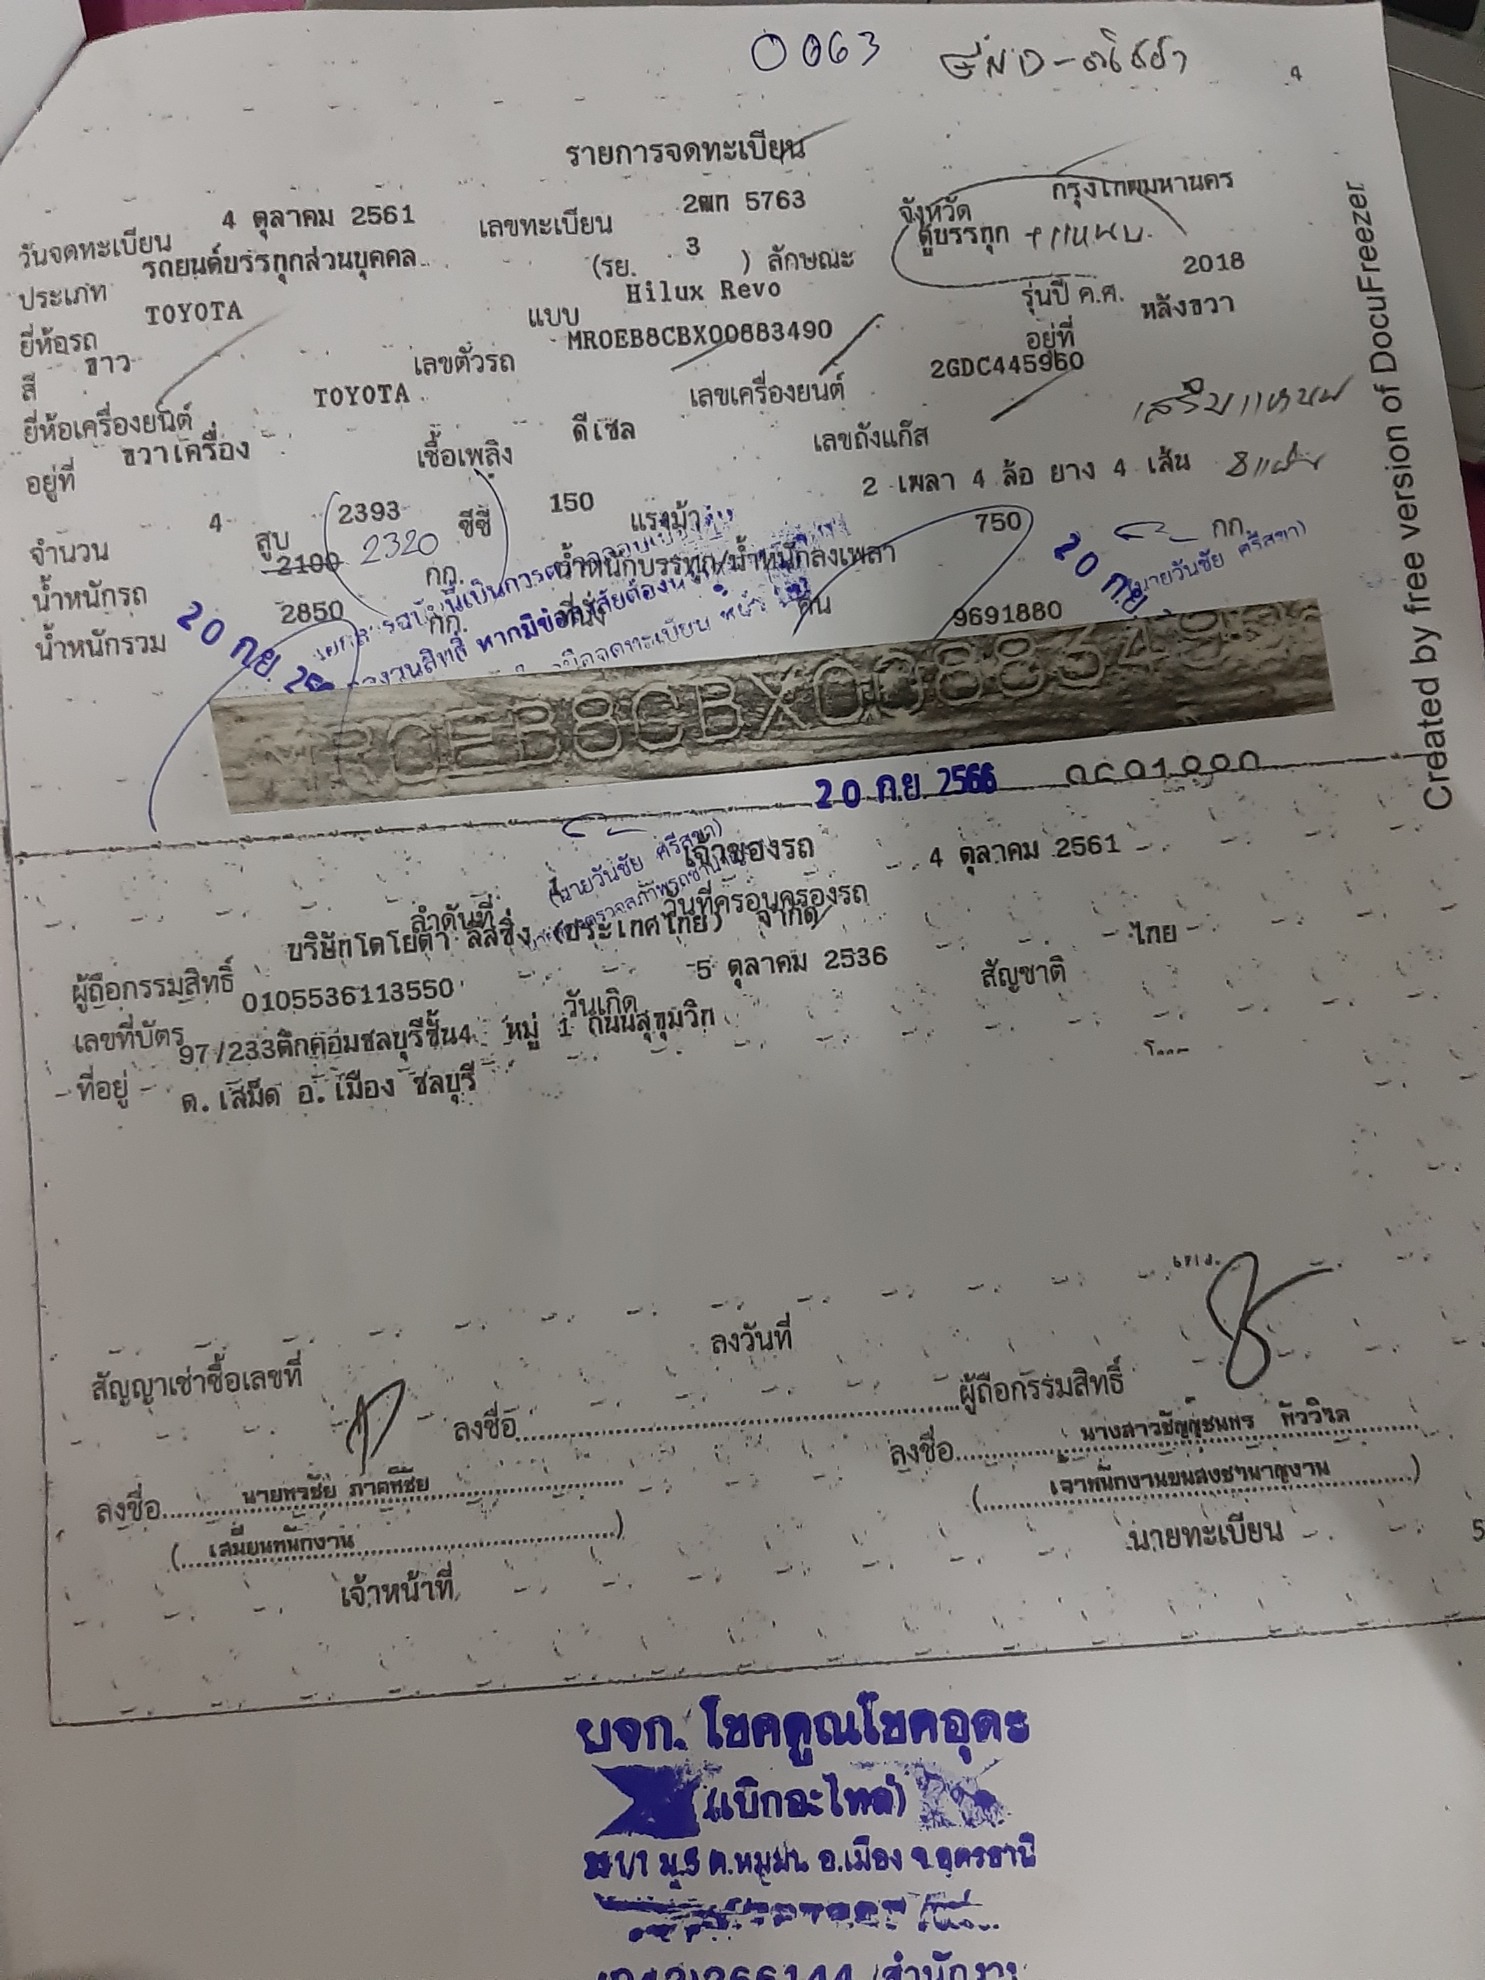 0063
4
รายการจดทะเบียน
วันจดทะเบียน 4 ตุลาคม 2561 เลขทะเบียน 2ฒก 5763 จังหวัด กรุงเทพมหานคร
ประเภท รถยนต์บรรทุกส่วนบุคคล (รย. 3 ) ลักษณะ ตู้บรรทุก + แหนบ
ยี่ห้อรถ TOYOTA แบบ Hilux Revo รุ่นปี ค.ศ. 2018
สี ขาว เลขตัวรถ MR0EB8CBX00883490 อยู่ที่ หลังขวา
ยี่ห้อเครื่องยนต์ TOYOTA เลขเครื่องยนต์ 2GDC445960
อยู่ที่ ขวาเครื่อง เชื้อเพลิง ดีเซล เลขถังแก๊ส เสริมแหนบ
จำนวน 4 สูบ 2393 ซีซี 150 แรงม้า 2 เพลา 4 ล้อ ยาง 4 เส้น 8 แผ่น
น้ำหนักรถ 2100 2320 กก. น้ำหนักบรรทุก/น้ำหนักลงเพลา 750 กก.
น้ำหนักรวม 2850 กก. ที่นั่ง คน 9691880
20 ก.ย. 20 ก.ย.
(นายวันชัย ศรีสุขา)
หากมีข้อสงสัยต้อง
MR0EB8CBX0088349
20 ก.ย. 2566
(นายวันชัย ศรีสุขา)
เจ้าของรถ
ลำดับที่ 1 วันที่ครอบครองรถ 4 ตุลาคม 2561
ผู้ถือกรรมสิทธิ์ บริษัทโตโยต้า ลีสซิ่ง (ประเทศไทย) จำกัด
เลขที่บัตร 0105536113550 วันเกิด 5 ตุลาคม 2536 สัญชาติ ไทย
ที่อยู่ 97/233ตึกคอมชลบุรีชั้น4 หมู่ 1 ถนนสุขุมวิท
ต. เสม็ด อ. เมือง ชลบุรี
สัญญาเช่าซื้อเลขที่ ลงวันที่
ลงชื่อ ผู้ถือกรรมสิทธิ์
ลงชื่อ นายพรชัย ภาคพิชัย ลงชื่อ
(เสมียนพนักงาน) (เจ้าพนักงานขนส่งชำนาญงาน)
เจ้าหน้าที่ นายทะเบียน
5
Created by free version of DocuFreezer
หจก. โชคคูณโชคอุดร
(เบิกอะไหล่)
ม.5 ต.หมูม่น อ.เมือง จ.อุดรธานี